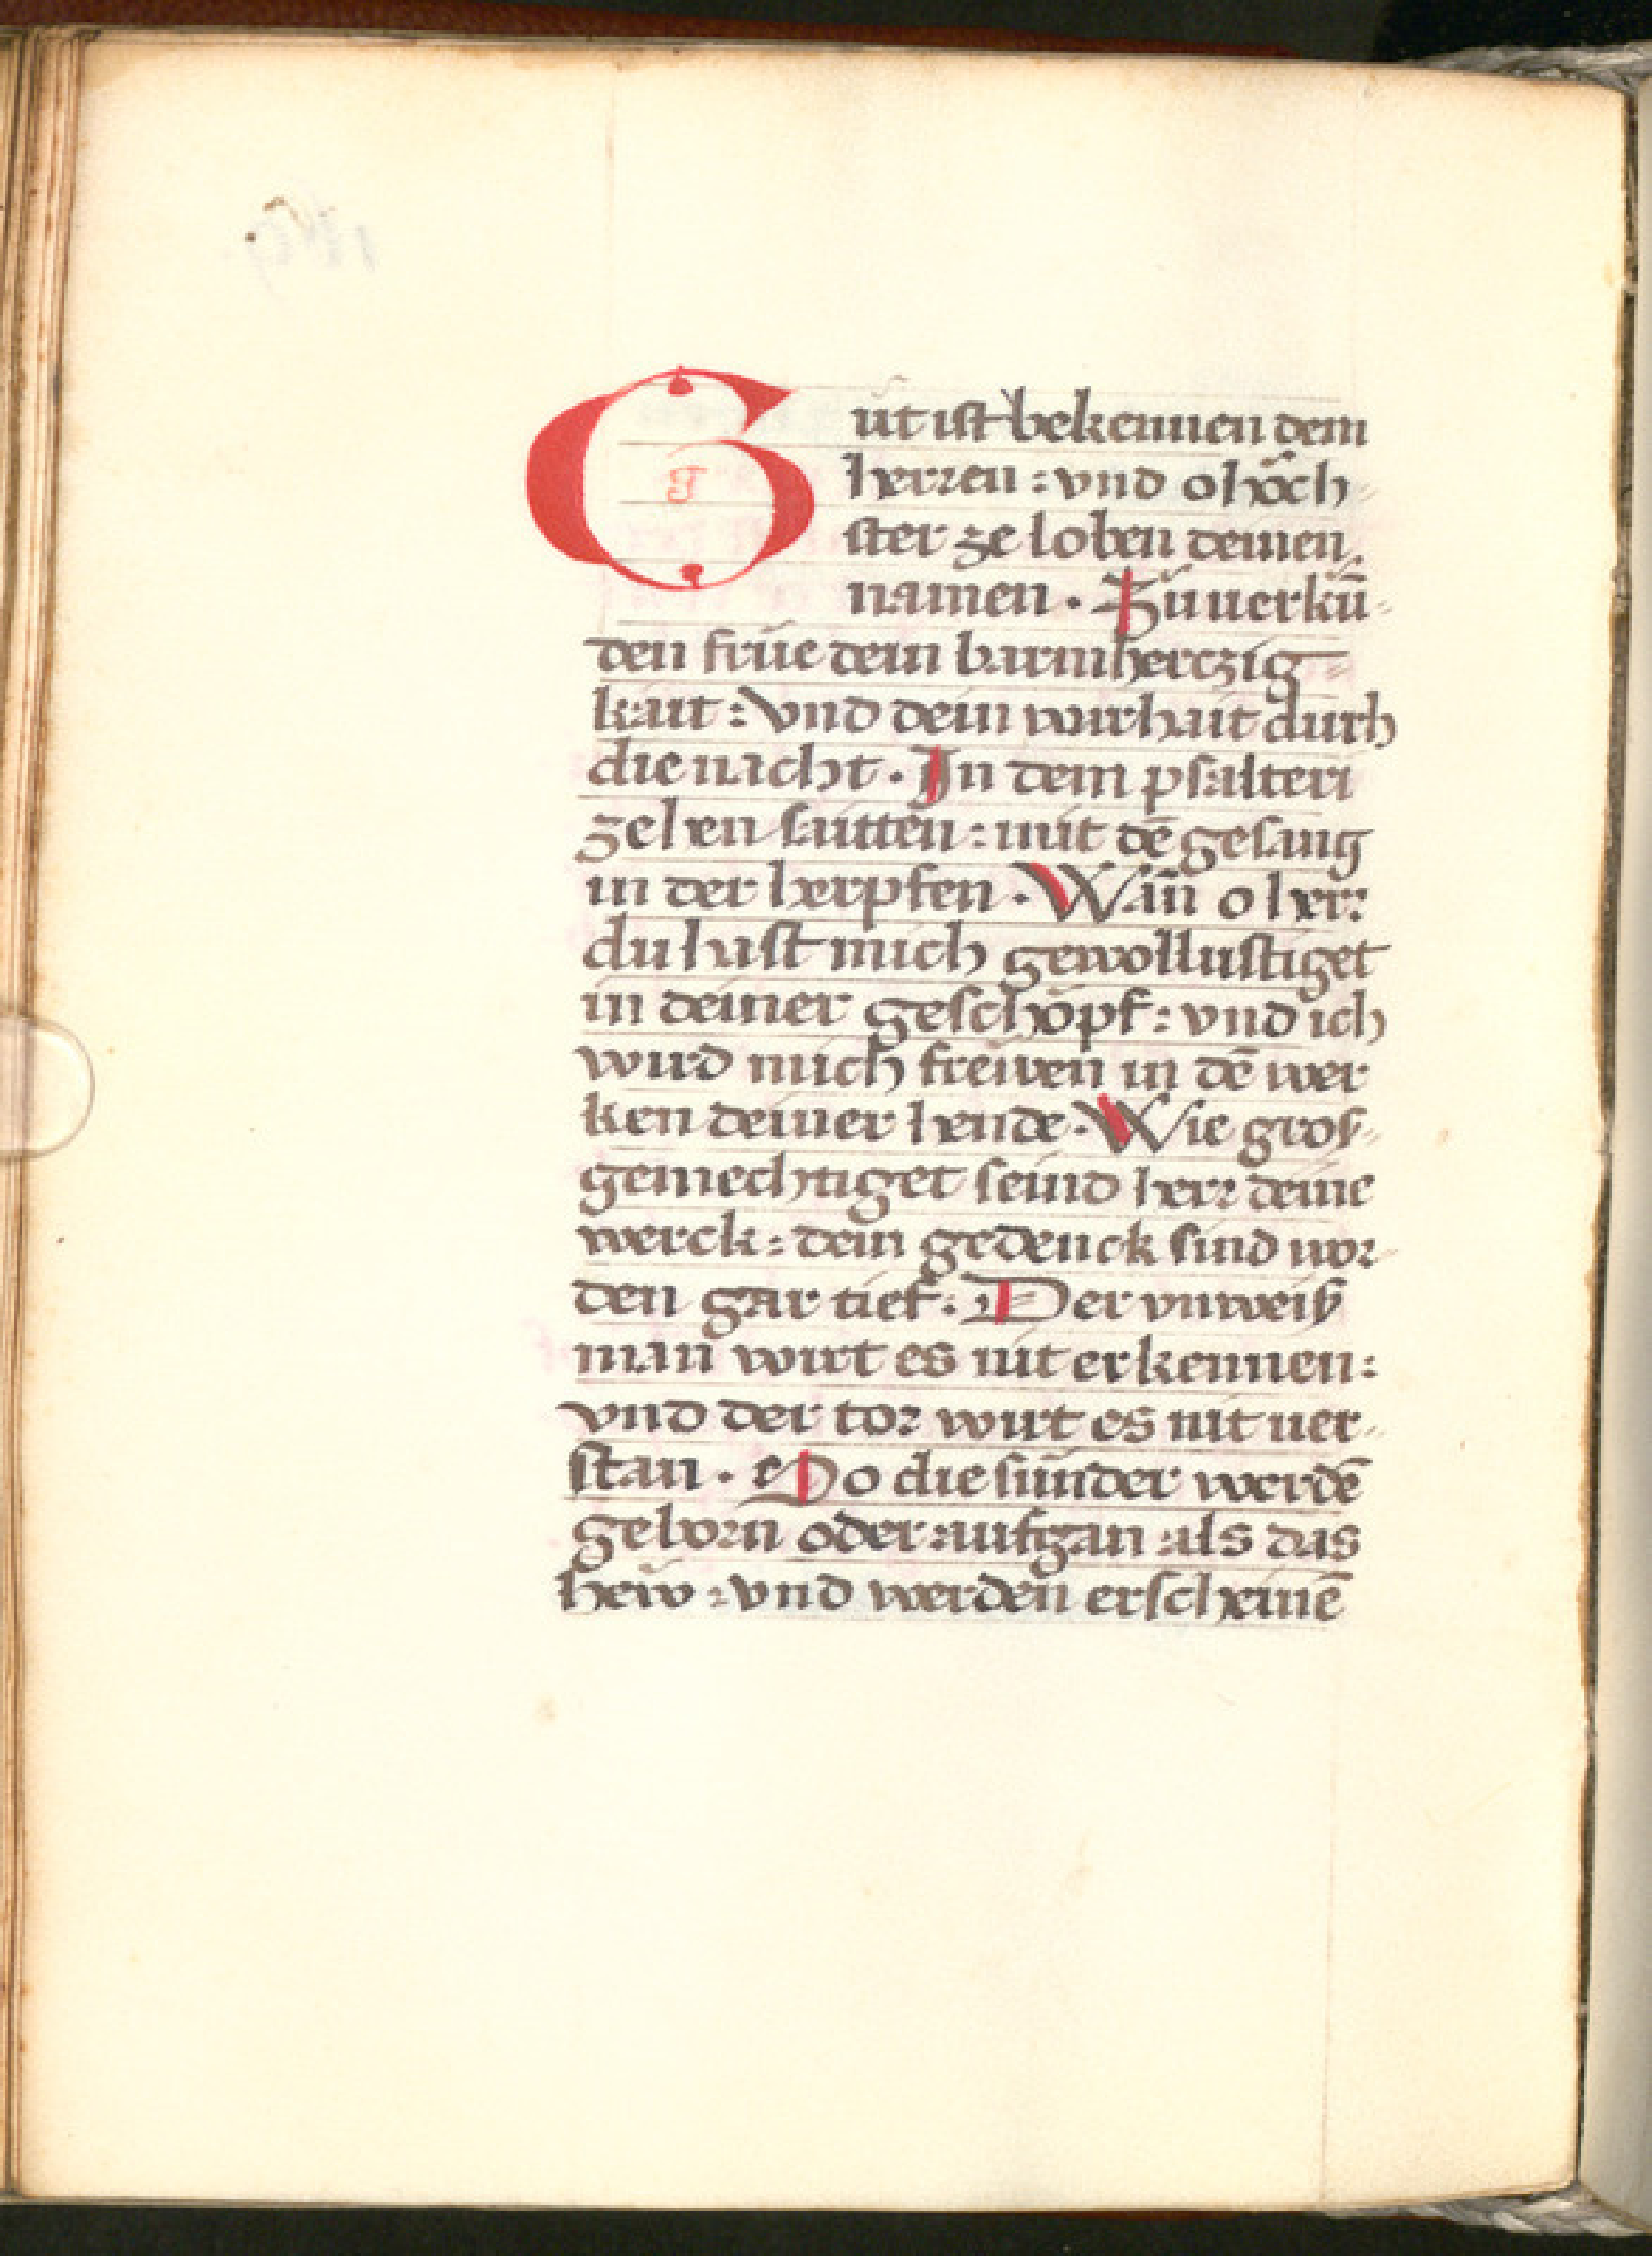 Gůt ist bekennen dem
herren : vnd o höch-
ster ze loben deinen
namen . Zů uerkǖ-
den früe dein barmherczig-
kait : Vnd dein warhait durch
die nacht . In dem psalteri
zehen saitten : mit dē gesang
in der herpfen . Wañ o herr
du hast mich gewollustiget
in deiner geschöpf : vnd ich
wird mich freẅen in dē wer
ken deiner hende . Wie gros-
gemechtiget seind herr deine
werck : dein gedenck sind wor-
den gar tief . Der vnweiß
man wirt es nit erkennen :
vnd der tor wirt es nit uer-
stan . So die sünder werdē
geborn oder aufgan als das
heẅ : vnd werden erscheinē